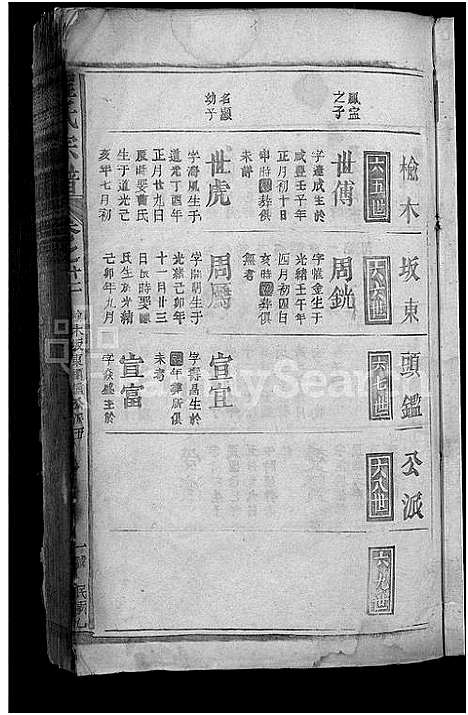 檢木坂東頭鑑一公派
六五世
六六世
六七世
六八世
六九世
鳳宣之子
世傅
字達成生於
咸豐壬子年
正月初十日
申時葬俱
未詳
名顯幼子
世虎
字海風生于
道光丁酉年
正月廿九日
辰時娶曹氏
生于道光己
亥年七月初
周銚
字惟金生于
光緒壬午年
四月初四日
亥時葬俱
無考
周
字開朝生于
光緒己卯年
十一月廿三
日辰時娶陳
氏生於光緒
己卯年九月
宣宜
字壽昌生於
年葬所俱
未考
宣富
字焱盛生於
氏宗譜
FamilySearch